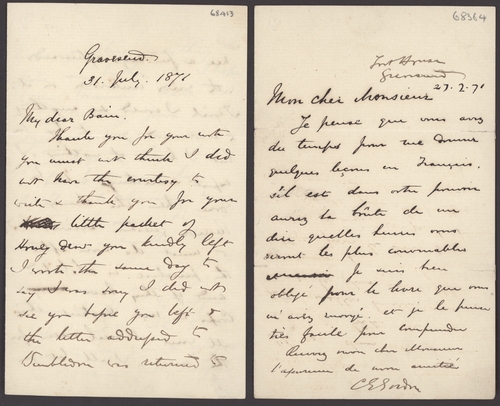 68413
Gravesend.
31. July. 1871
My dear Bain.
Thank you for your note
you must not think I did
not have the courtesy to
write & thank you for your
little packet of
Honey dew you kindly left
I wrote the same day to
say I was sorry I did not
see you before you left &
the letter addressed to
Wimbledon was returned to
68364
Fort House
Gravesend
27.2.71
Mon cher Monsieur
Je pense que vous avez
du temps pour me donner
quelques leçons en Français.
S'il est dans votre pouvoir
auriez la bonté de me
dire quelles heures vous
seront les plus convenables
Je suis bien
obligé pour le livre que vous
m'avez envoyé. et je le pense
très facile pour comprendre
mon cher Monsieur
l'assurance de mon amitié
C E Gordon